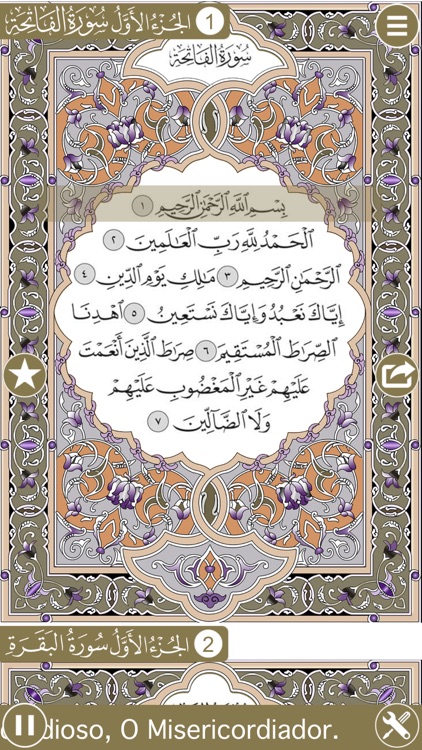 الجُزْءُ الأَوَّلُ سُورَةُ الفَاتِحَةِ 1
سُورَةُ الْفَاتِحَةِ
بِسْمِ ٱللَّهِ ٱلرَّحْمَٰنِ ٱلرَّحِيمِ ١
ٱلْحَمْدُ لِلَّهِ رَبِّ ٱلْعَٰلَمِينَ ٢
ٱلرَّحْمَٰنِ ٱلرَّحِيمِ ٣ مَٰلِكِ يَوْمِ ٱلدِّينِ ٤
إِيَّاكَ نَعْبُدُ وَإِيَّاكَ نَسْتَعِينُ ٥ ٱهْدِنَا
ٱلصِّرَٰطَ ٱلْمُسْتَقِيمَ ٦ صِرَٰطَ ٱلَّذِينَ أَنْعَمْتَ
عَلَيْهِمْ غَيْرِ ٱلْمَغْضُوبِ عَلَيْهِمْ
وَلَا ٱلضَّآلِّينَ ٧
الجُزْءُ الأَوَّلُ سُورَةُ البَقَرَةِ 2
dioso, O Misericordiador.